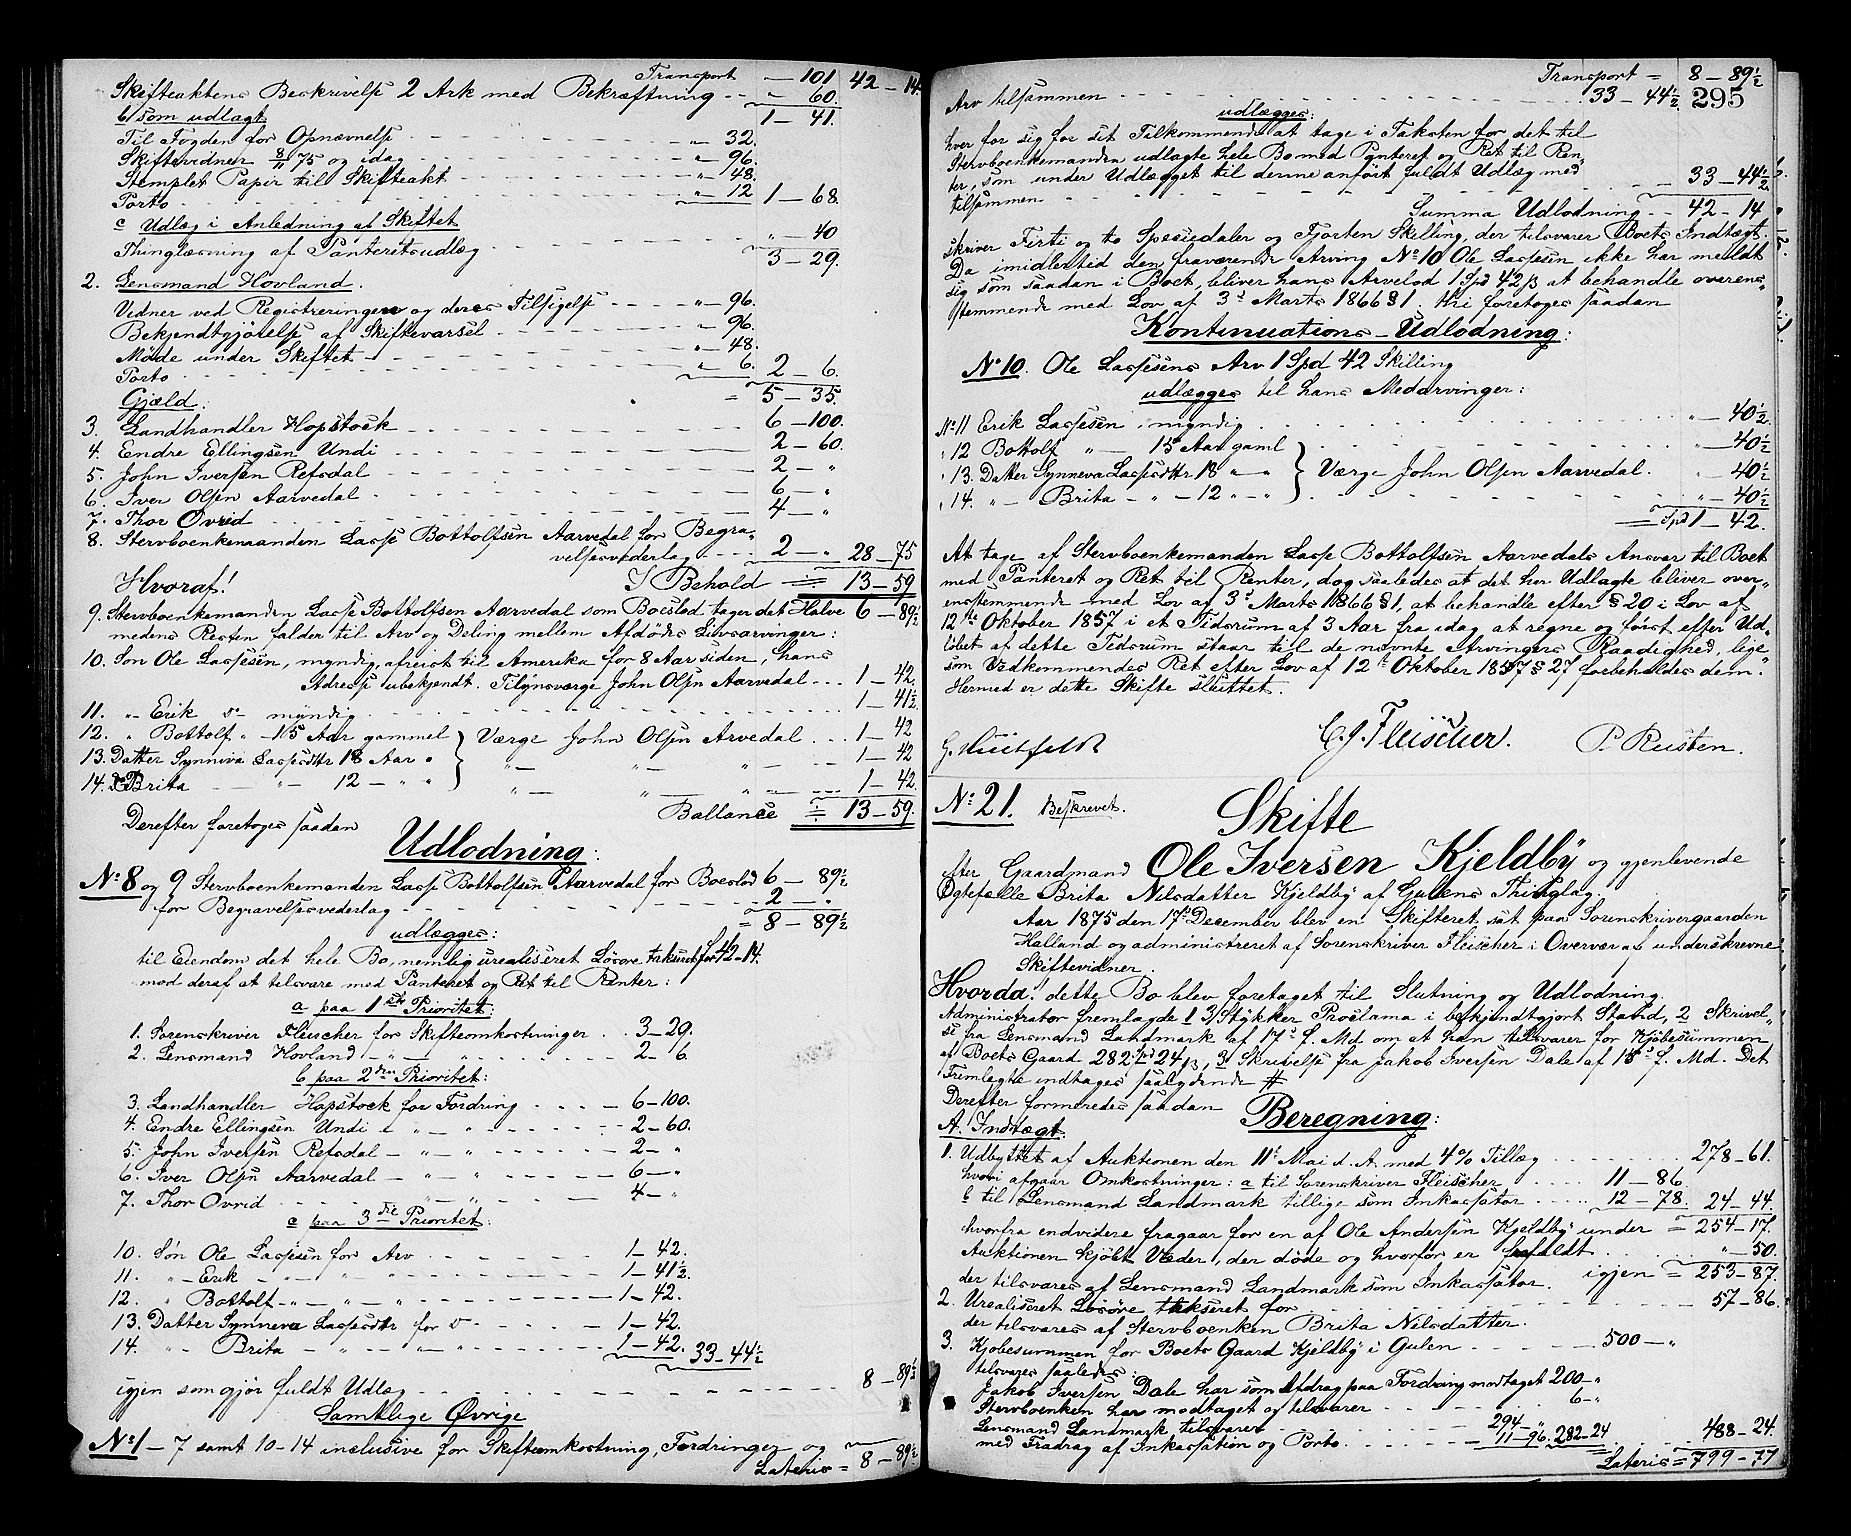 Transport — 101 42 — 14.
Skifteaktens Beskrivelse 2 Ark med Bekræftning - - " 60.
b som udlagt 1 — 41.
Til Fogden for Opnævnelse - - - " 32.
Skiftevidner 8/11 75 og idag - - - " 96.
Stemplet Papir til Skifteakt - - - " 48.
Porto - - - " 12 1 — 68.
c Udlæg i Anledning af Skiftet
Thinglæsning af Panteretsudlæg - - - " 40
3 — 29.
2. Lensmand Hovland.
Vidner ved Registreringen og deres Tilsigelse - - - " — 96.
Bekjendtgjörelse af Skiftevarsel - - - " 96.
Möde under Skiftet - - - " — 48.
Porto - - - " 6. 2 — 6.
Gjæld. = 5 — 35.
3. Landhandler Hopstock - - - 6 — 100.
4. Endre Ellingsen Undi - - - 2 — 60.
5. John Iversen Refsdal - - - 2 — "
6. Iver Olsen Aarvedal - - - 6 — "
7. Thor Övrid - - - 4 — "
8. Stervboenkemanden Lasse Bottolfsen Aarvedal for Begra-
velsesvederlag - - - 2 — " 28 — 75
Hvoraf! I Behold = 13 — 59
9. Stervboenkemanden Lasse Bottolfsen Aarvedal som Boeslod tager det Halve 6 — 89½
medens Resten falder til Arv og Deling mellem Afdödes Livsarvinger:
10. Sön Ole Lassesen, myndig, afreist til Amerika for 8 Aar siden, hans
Adresse ubekjendt. Tilsynsværge John Olsen Aarvedal - - - 1 — 42.
11. " Erik do myndig - - - 1 — 41½.
12. " Bottolf " — 15 Aar gammel } Værge John Olsen Arvedal - - - 1 — 42
13. Datter Synneva Lassesdttr 18 Aar " " — " — " — 1 — 42
14. do Brita — " — 12 — " " " — " — " — 1 — 42
Ballance = 13 — 59.
Derefter foretoges saadan
Udlodning:
No 8 og 9 Stervboenkemanden Lasse Bottolfsen Aarvedal for Boeslod 6 — 89½
for Begravelsesvederlag - - - 2 — "
= 8 — 89½
udlægges:
til Eiendom det hele Bo, nemlig urealiseret Lösöre takseret for 42 — 14.
mod deraf at tilsvare med Panteret og Ret til Renter:
a paa 1ste Prioritet:
1. Sorenskriver Fleischer for Skifteomkostninger . . 3 — 29.
2. Lensmand Hovland — " — " - - - 2 — 6
b paa 2den Prioritet:
3. Landhandler Hopstock for Fordring - - - 6 — 100.
4. Endre Ellingsen Undi " — " - - - 2 — 60.
5. John Iversen Refsdal — " — " - - - 2 — "
6. Iver Olsen Aarvedal — " — " - - - 6 — "
7. Thor Övrid - - - " — " - - - 4 — "
c paa 3die Prioritet:
10. Sön Ole Lassesen for Arv - - - 1 — 42.
11. " — Erik — " — " - - - 1 — 41½.
12. " Bottolf — " — " - - - 1 — 42.
13. Datter Synneva Lassesdttr for do - - - 1 — 42.
14. " Brita — " — " - - - 1 — 42. 33 — 44½
igjen som gjör fuldt Udlæg - - - 8 — 89½
Samtlige Övrige
No 1 — 7 samt 10 — 14 inclusive for Skifteomkostning, Fordringer og
Lateris = 8 — 89½
Transport = 8 — 89½
295
Arv tilsammen - - - 33 — 44½
udlægges:
hver for sig for sit Tilkommende at tage i Taksten for det til
Stervboenkemanden udlagte hele Bo med Panteret og Ret til Ren-
ter, som under Udlægget til denne anfört fuldt Udlæg med
tilsammen - - - 33 — 44½
Summa Udlodning - - 42 — 14
skriver Firti og to Speciedaler og Fjorten Skilling, der tilsvarer Boets Indtægt.
Da imidlertid den fraværende Arving No 10 Ole Lassesen ikke har meldt
sig som saadan i Boet, bliver hans Arvelod 1 Spd 42 β at behandle overens-
stemmende med Lov af 3d Marts 1866 § 1. thi foretoges saadan
Kontinuations-Udlodning:
No 10. Ole Lassesens Arv 1 Spd 42 Skilling
udlægges til hans Medarvinger:
No 11 Erik Lassesen, myndig - - - " — 40½
" 12 Bottolf " — 15 Aar gaml } " — 40½
" 13. Datter Synneva Lassesdttr 18 " — " } Værge John Olsen Aarvedal. " 40½
" 14. " — Brita — " — 12 " — " } - - - " — 40½
= Spd 1 — 42.
At tage af Stervboenkemanden Lasse Bottolfsen Aarvedals Ansvar til Boet
med Panteret og Ret til Renter, dog saaledes at det her Udlagte bliver over-
ensstemmende med Lov af 3d Marts 1866 § 1, at behandle efter § 20 i Lov af
12te Oktober 1857 i et Tidsrum af 3 Aar fra idag at regne og först efter Ud-
löbet af dette Tidsrum staar til de nævnte Arvingers Raadighed, lige-
som Vedkommendes Ret efter Lov af 12te Oktober 1857 § 27 forbeholdes dem.
Hermed er dette Skifte sluttet.
G. Huitfeldt C. J. Fleischer. P. Reisten.
No 21. Beskrevet.
Skifte
efter Gaardmand Ole Iversen Kjeldby og gjenlevende
Egtefælle Brita Nilsdatter Kjeldby af Gulens Thinglag.
Aar 1875 den 17d December blev en Skifteret sat paa Sorenskrivergaarden
Halland og administreret af Sorenskriver Fleischer i Overvær af underskrevne
Skiftevidner.
Hvorda! dette Bo blev foretaget til Slutning og Udlodning.
Administrator fremlagde 1 3 Stykker Proclama i bekjendtgjort Stand, 2 Skrivel-
se fra Lensmand Landmark af 17d f. Md om at han tilsvarer for Kjöbesummen
af Boets Gaard 282 Spd 24 β, 3 Skrivelse fra Jakob Iversen Dale af 18d f. Md. Det
Fremlagte indtages saalydende #
Derefter formeredes saadan Beregning:
A. Indtægt:
1. Udbyttet af Auktionen den 11d Mai d. A. med 4 % Tillæg - - - 278 — 61.
hvori afgaar Omkostninger: a til Sorenskriver Fleischer - - - 11 — 86.
b til Lensmand Landmark tillige som Inkassator - - - 12 — 78. 24 — 44.
= 254 — 17.
hvorfra endvidere fragaar for en af Ole Andersen Kjeldby under
Auktionen kjöbt Væder, der döde og hvorfor er frafaldt - - - " — 50.
igjen = 253 — 87.
der tilsvares af Lensmand Landmark som Inkassator.
2. Urealiseret Lösöre takseret for - - - 57 — 86.
der tilsvares af Stervboenken Brita Nilsdatter.
3. Kjöbesummen for Boets Gaard Kjeldby i Gulen - - - 500 — "
tilsvares saaledes:
Jakob Iversen Dale har som Afdrag paa Fordring modtaget 200 — "
Stervboenken har modtaget og tilsvarer - - - 6 — "
Lensmand Landmark tilsvarer - - - 294 — "
med Fradrag af Inkassation og Porto - - - 11 — 96. 282 — 24 488 — 24.
Lateris = 799 — 77